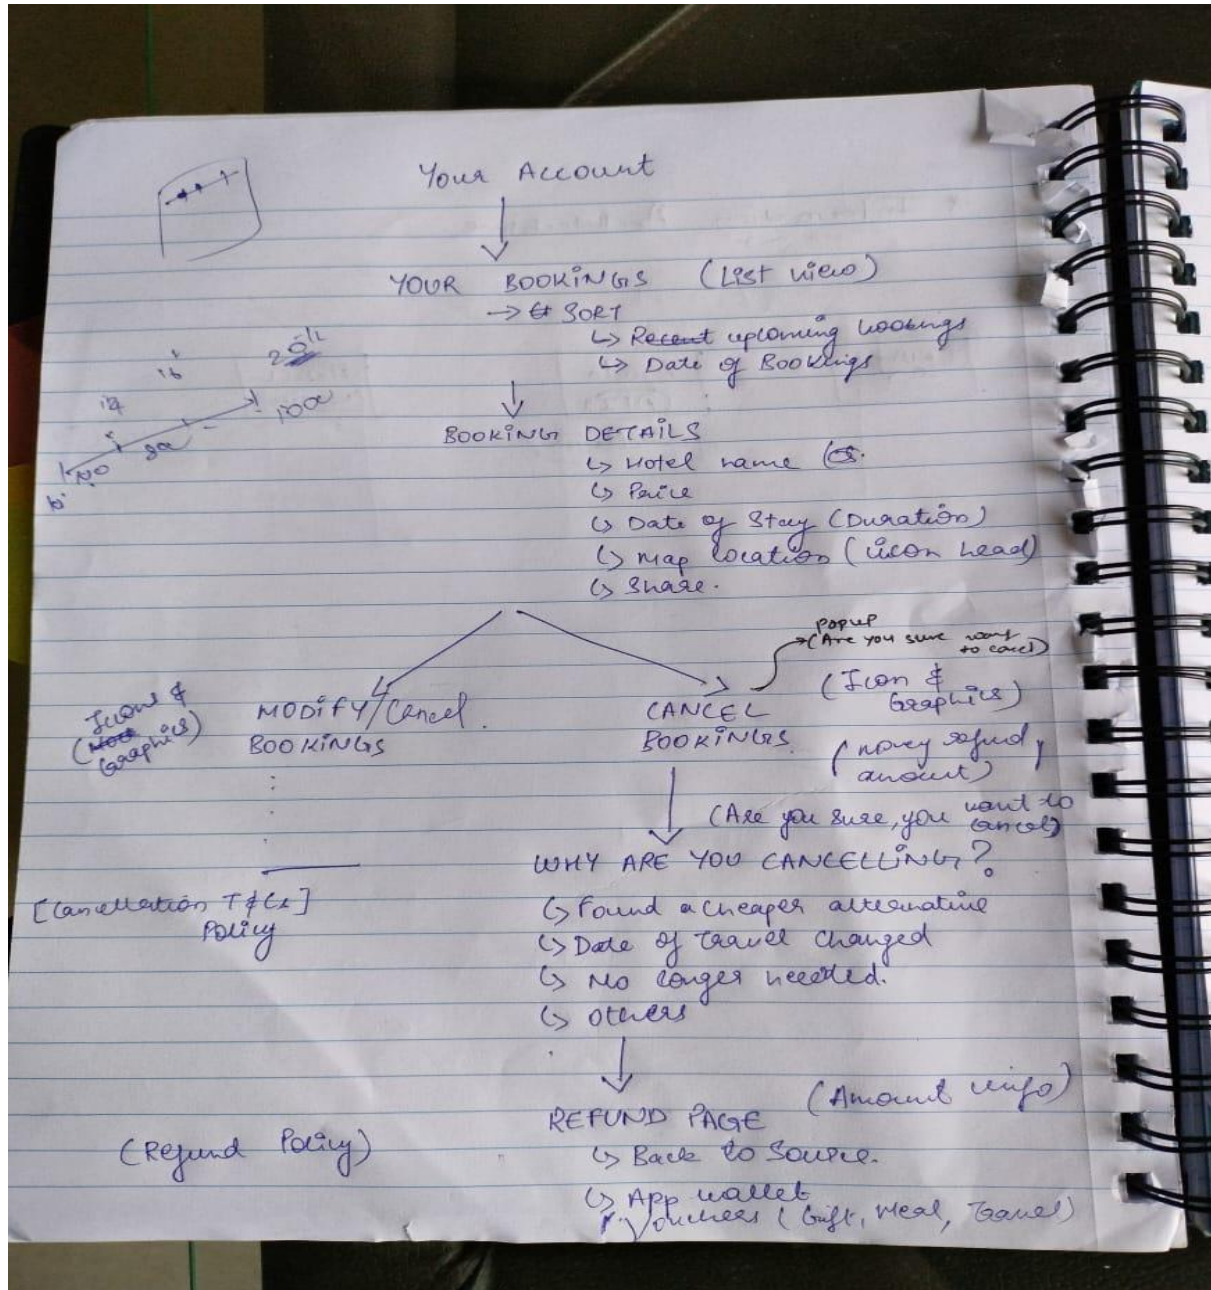 Your Account
YOUR BOOKINGS (List view)
→ SORT
↳ Recent upcoming bookings
↳ Date of Bookings
20%
16
12
100
80
BOOKING DETAILS
↳ Hotel name
↳ Price
↳ Date of Stay (Duration)
↳ Map location (icon head)
↳ Share.
popup
(Are you sure want to cancel)
Icons &
Graphics)
MODIFY/Cancel
BOOKINGS
CANCEL
BOOKINGS.
(Icon &
Graphics)
(money refund,
amount)
(Are you sure, you want to
cancel)
WHY ARE YOU CANCELLING?
[Cancellation T&Cs]
Policy
↳ Found a cheaper alternative
↳ Date of travel changed
↳ No longer needed.
↳ Others
REFUND PAGE (Amount info)
(Refund Policy)
↳ Back to Source.
↳ App wallet
Vouchers (Gift, Meal, Travel)